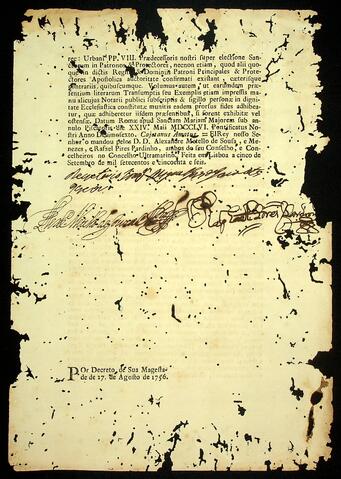 rec: Urbani PP. VIII. Prædecessoris nostri super electione San-
ctorum in Patronos, & Protectores, necnon etiam, quod alii quo-
que in dictis Regnis, & Dominiis Patroni Principales & Prote-
ctores Apostolica auctoritate confirmati existant, cæterisque
contrariis quibuscumque. Volumus autem, ut earundem præ-
sentium literarum Transumptis seu Exemplis etiam impressis ma-
nu alicujus Notarii publici subscriptis & sigillo personæ in digni-
tate Ecclesiastica constitutæ munitis eadem prorsus fides adhibea-
tur, quæ adhiberetur iisdem præsentibus, si forent exhibitæ vel
ostensæ. Datum Romæ apud Sanctam Mariam Majorem sub an-
nulo Piscatoris die XXIV. Maii MDCCLVI. Pontificatus No-
stri Anno Decimosexto. Cajetanus Amatus. = ElRey nosso Se-
nhor o mandou pelos D. D. Alexandre Metello de Sousa, e Me-
nezes, e Rafael Pires Pardinho, ambos do seu Conselho, e Con-
celheiros no Conselho Ultramatino. Feita em Lisboa a cinco de
Setembro de mil setecentos e cincoenta e seis.
POr Decreto, de Sua Magesta-
de de 17. de Agosto de 1756.